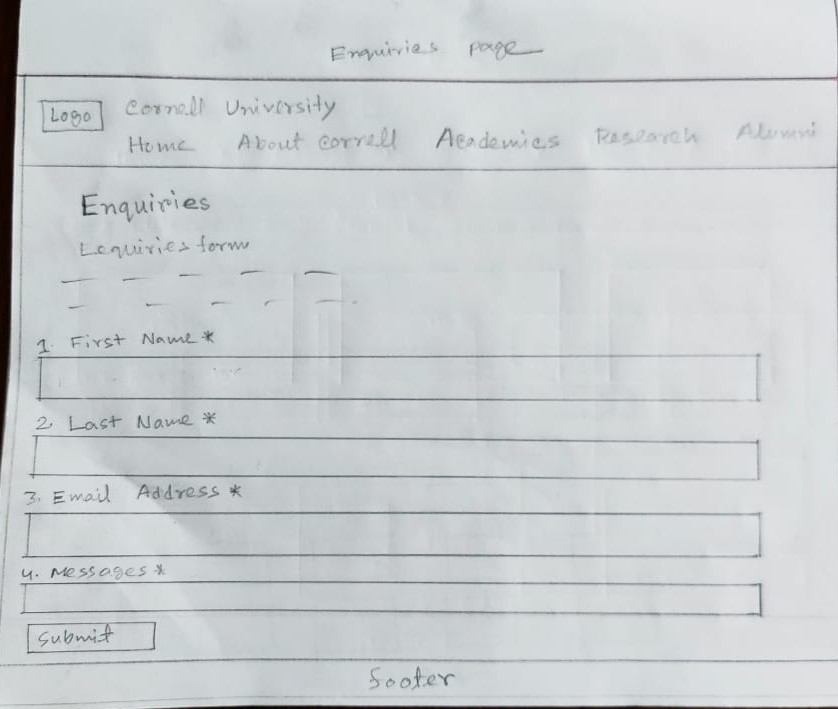 Enquiries page
Logo
Cornell University
Home About Cornell Academics Research Alumni
Enquiries
Enquiries form
1. First Name *
2. Last Name *
3. Email Address *
4. Messages *
Submit
footer